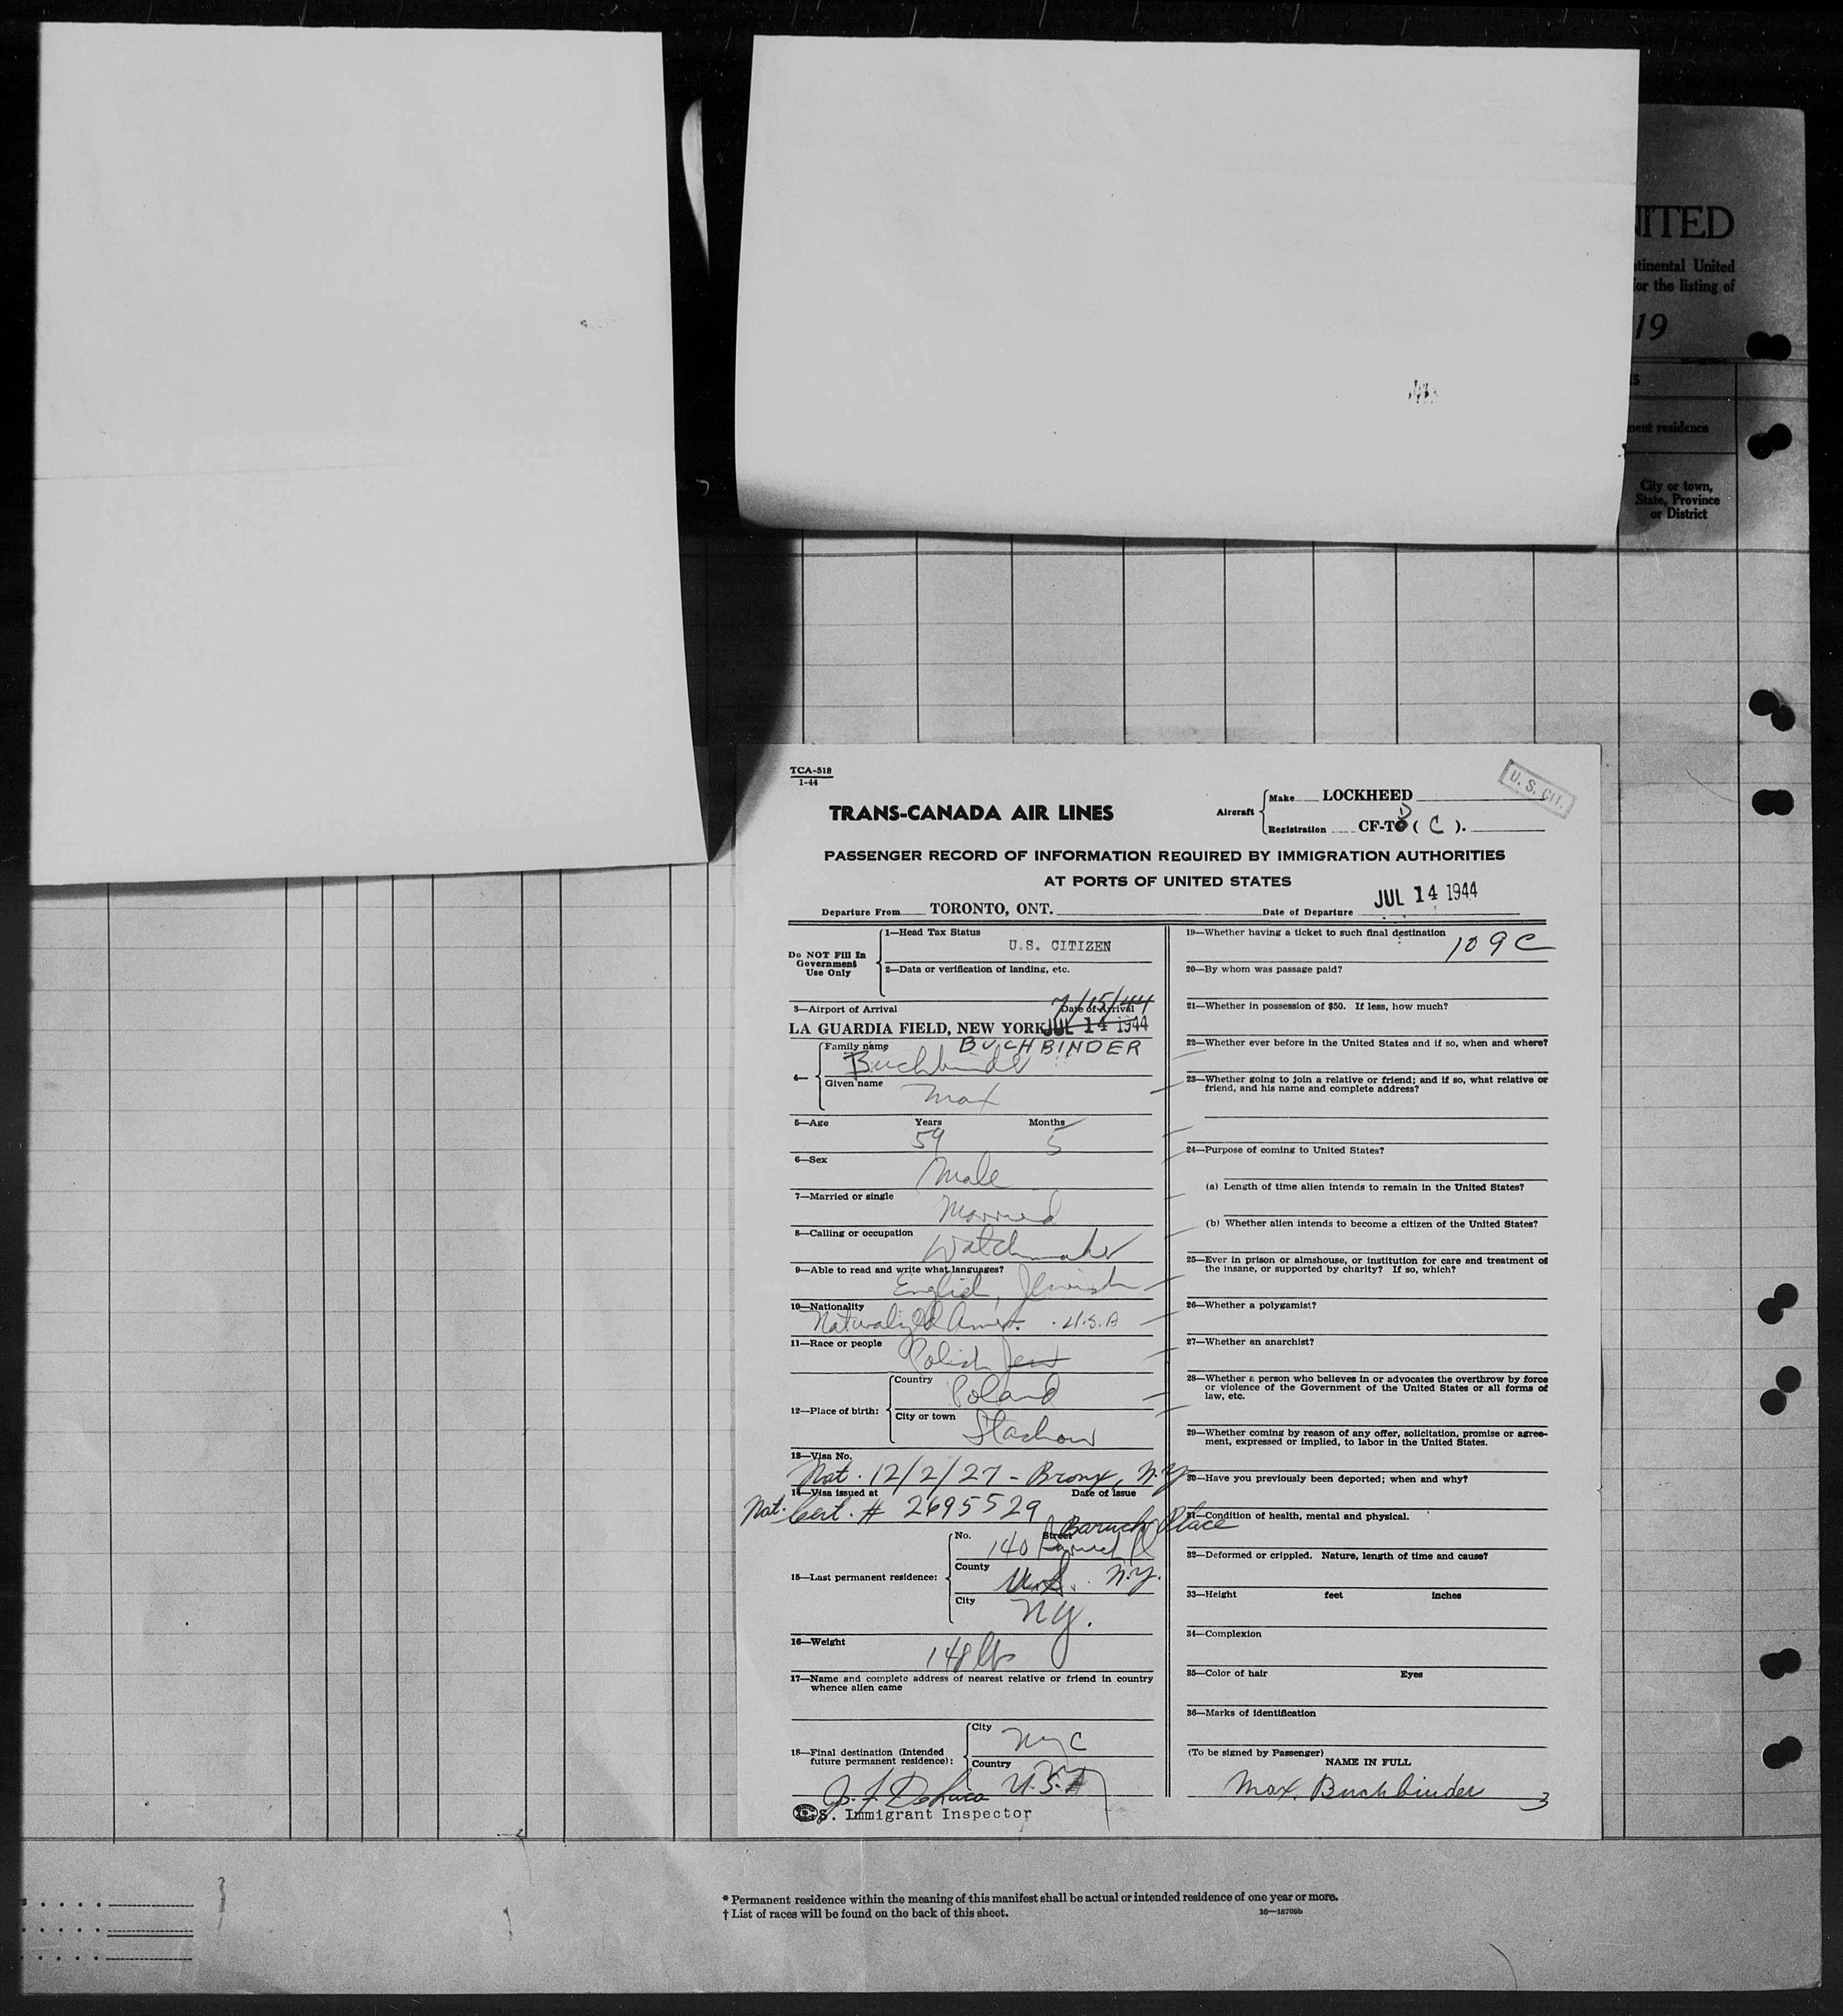 NITED
tinental United
or the listing of
19
15
ment residence
City or town,
State, Province
or District
TCA-518
1-44
TRANS-CANADA AIR LINES
Aircraft
Make LOCKHEED
Registration CF-T ( C ).
U. S. CIT.
PASSENGER RECORD OF INFORMATION REQUIRED BY IMMIGRATION AUTHORITIES
AT PORTS OF UNITED STATES
Departure From TORONTO, ONT.
Date of Departure JUL 14 1944
Do NOT Fill In
Government
Use Only
1—Head Tax Status
U.S. CITIZEN
2—Data or verification of landing, etc.
3—Airport of Arrival
Date of Arrival
7/15/44
LA GUARDIA FIELD, NEW YORK JUL 14 1944
4—
Family name BUCHBINDER
Buchbinder
Given name
Max
5—Age Years Months
59 5
6—Sex
Male
7—Married or single
Married
8—Calling or occupation
Watchmaker
9—Able to read and write what languages?
English, Jewish
10—Nationality
Naturalized Amer. U.S.A
11—Race or people
Polish Jew
12—Place of birth:
Country
Poland
City or town
Stachow
13—Visa No.
Nat. 12/2/27 - Bronx, N.Y
14—Visa issued at Date of issue
Nat. Cert. # 2695529
15—Last permanent residence:
Baruch Place
No. Street
140 Baruch Pl
County
N.Y.
City
N.Y.
16—Weight
148 lbs
17—Name and complete address of nearest relative or friend in country
whence alien came
18—Final destination (Intended
future permanent residence):
City
NYC
Country
U.S.A
J. F. DeLuca
U.S. Immigrant Inspector
19—Whether having a ticket to such final destination
109C
20—By whom was passage paid?
21—Whether in possession of $50. If less, how much?
22—Whether ever before in the United States and if so, when and where?
23—Whether going to join a relative or friend; and if so, what relative or
friend, and his name and complete address?
24—Purpose of coming to United States?
(a) Length of time alien intends to remain in the United States?
(b) Whether alien intends to become a citizen of the United States?
25—Ever in prison or almshouse, or institution for care and treatment of
the insane, or supported by charity? If so, which?
26—Whether a polygamist?
27—Whether an anarchist?
28—Whether a person who believes in or advocates the overthrow by force
or violence of the Government of the United States or all forms of
law, etc.
29—Whether coming by reason of any offer, solicitation, promise or agree-
ment, expressed or implied, to labor in the United States.
30—Have you previously been deported; when and why?
31—Condition of health, mental and physical.
32—Deformed or crippled. Nature, length of time and cause?
33—Height feet inches
34—Complexion
35—Color of hair Eyes
36—Marks of identification
(To be signed by Passenger)
NAME IN FULL
Max. Buchbinder 3
* Permanent residence within the meaning of this manifest shall be actual or intended residence of one year or more.
† List of races will be found on the back of this sheet.
16—18709b